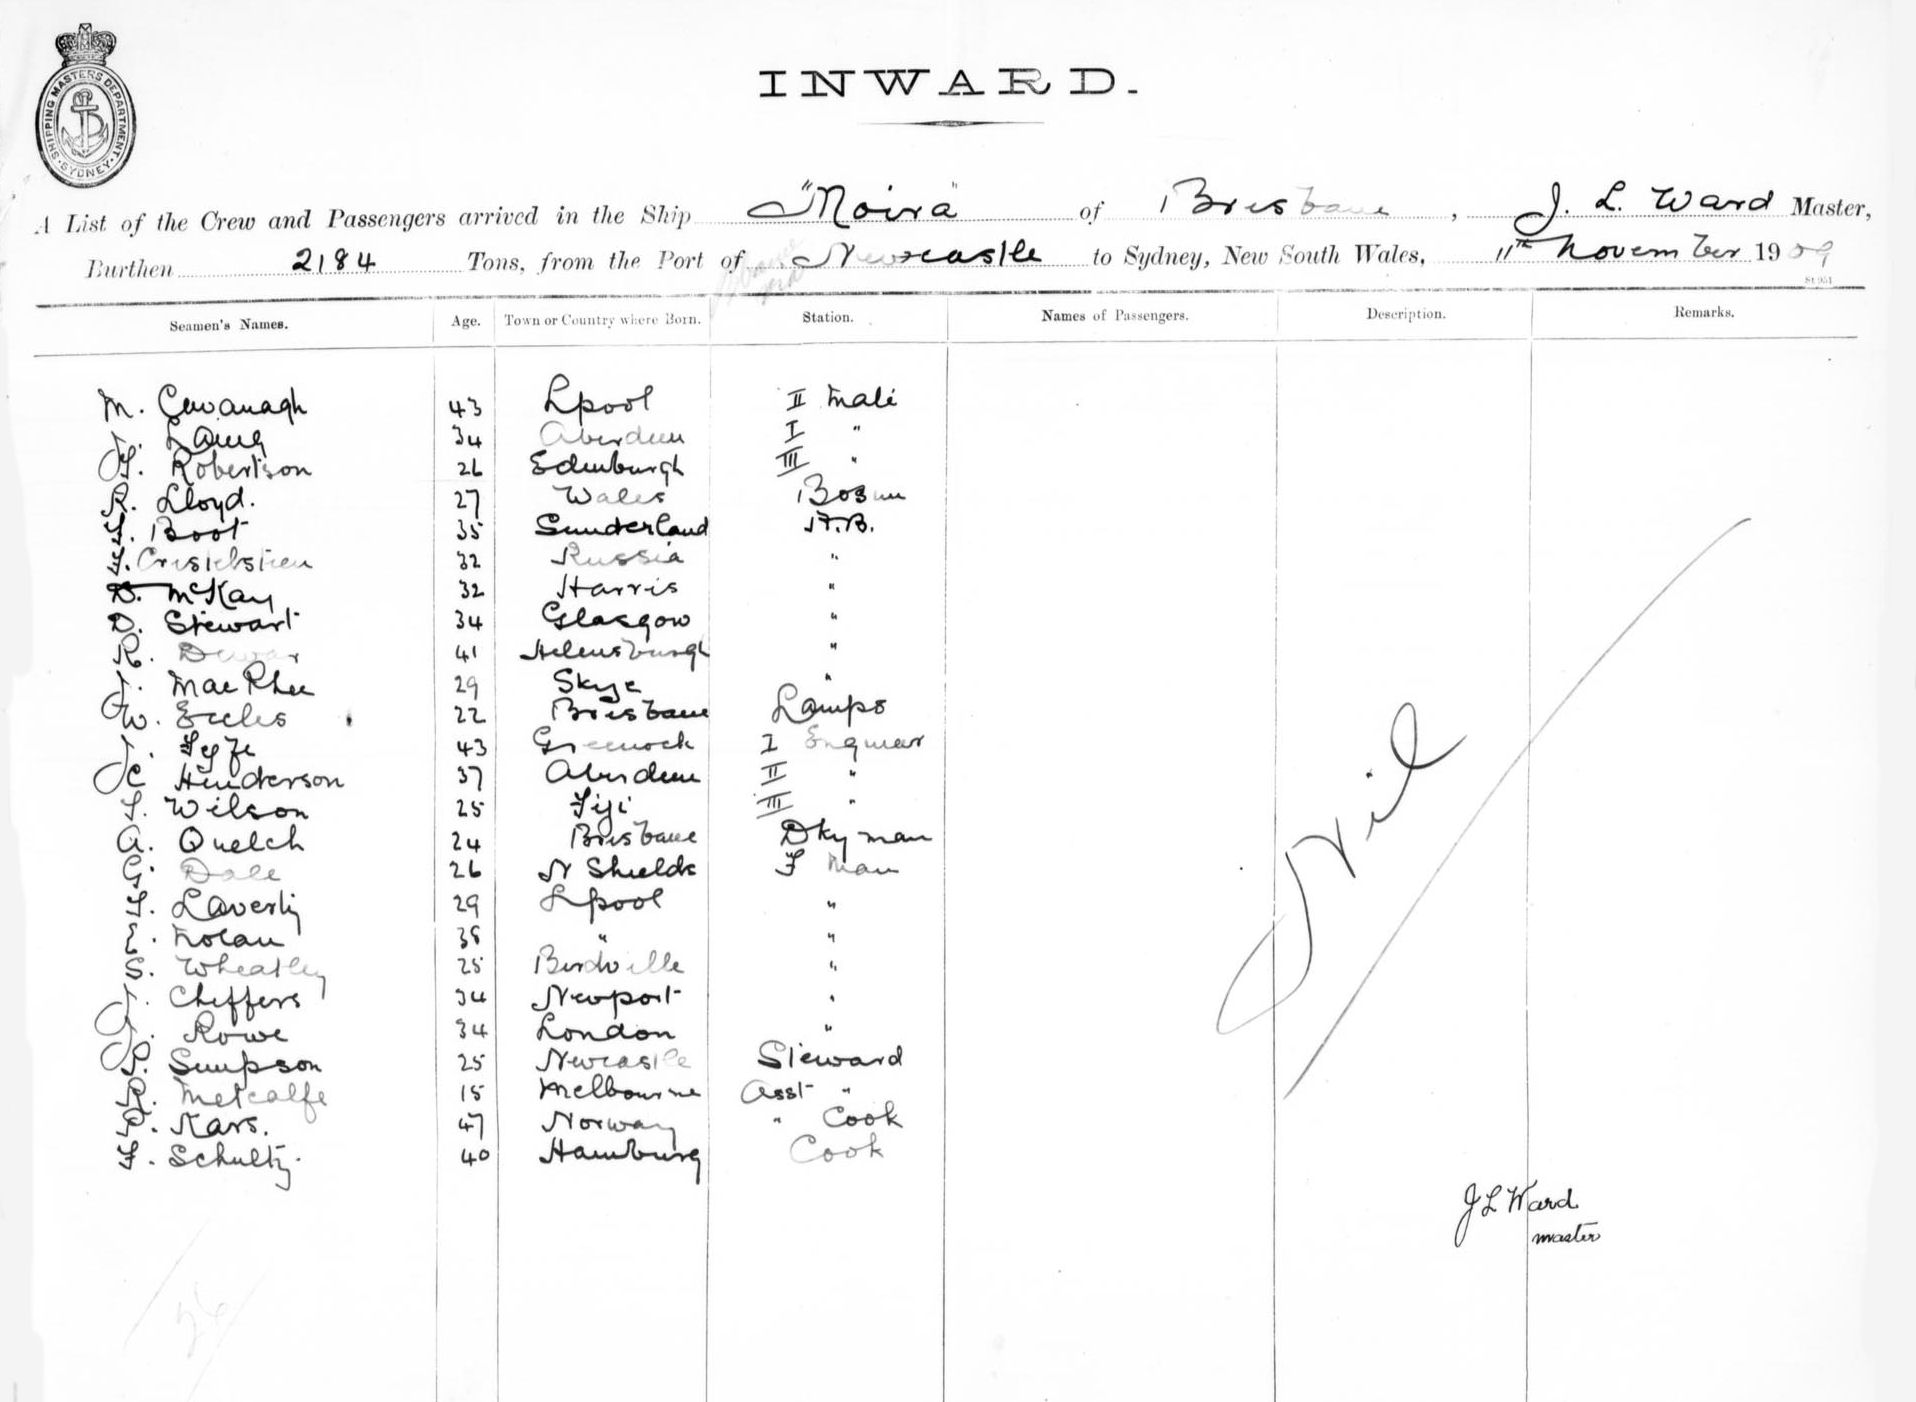 SHIPPING MASTERS DEPARTMENT · SYDNEY ·
INWARD.
A List of the Crew and Passengers arrived in the Ship "Moira" of Brisbane, J. L. Ward Master,
Burthen 2184 Tons, from the Port of Newcastle to Sydney, New South Wales, 11th November 1909
Seamen's Names. Age. Town or Country where Born. Station. Names of Passengers. Description. Remarks.
M. Cavanagh 43 Lpool II Mate
J. Laing 34 Aberdeen I "
H. Robertson 26 Edinburgh III "
R. Lloyd. 27 Wales Bosun
F. Boot 35 Sunderland A.B.
32 Russia "
D. McKay 32 Harris "
D. Stewart 34 Glasgow "
R. Dewar 41 Helensburgh "
J. MacPhee 29 Skye "
W. Eccles 22 Brisbane Lamps
J. Fyfe 43 Greenock I Engineer
C Henderson 37 Aberdeen II "
F. Wilson 25 Fiji III "
A. Quelch 24 Brisbane Dkyman
G. Dale 26 N Shields F Man
F. Laverty 29 Lpool "
Nolan "  "
S. Wheatley 25 Birdville "
J. Cheffers 34 Newport "
J. Rowe 34 London "
P. Simpson 25 Newcastle Steward
R. Metcalfe 15 Melbourne Asst "
P. Kars. 47 Norway " Cook
F. Schultz. 40 Hamburg Cook
Nil
J L Ward
master
26